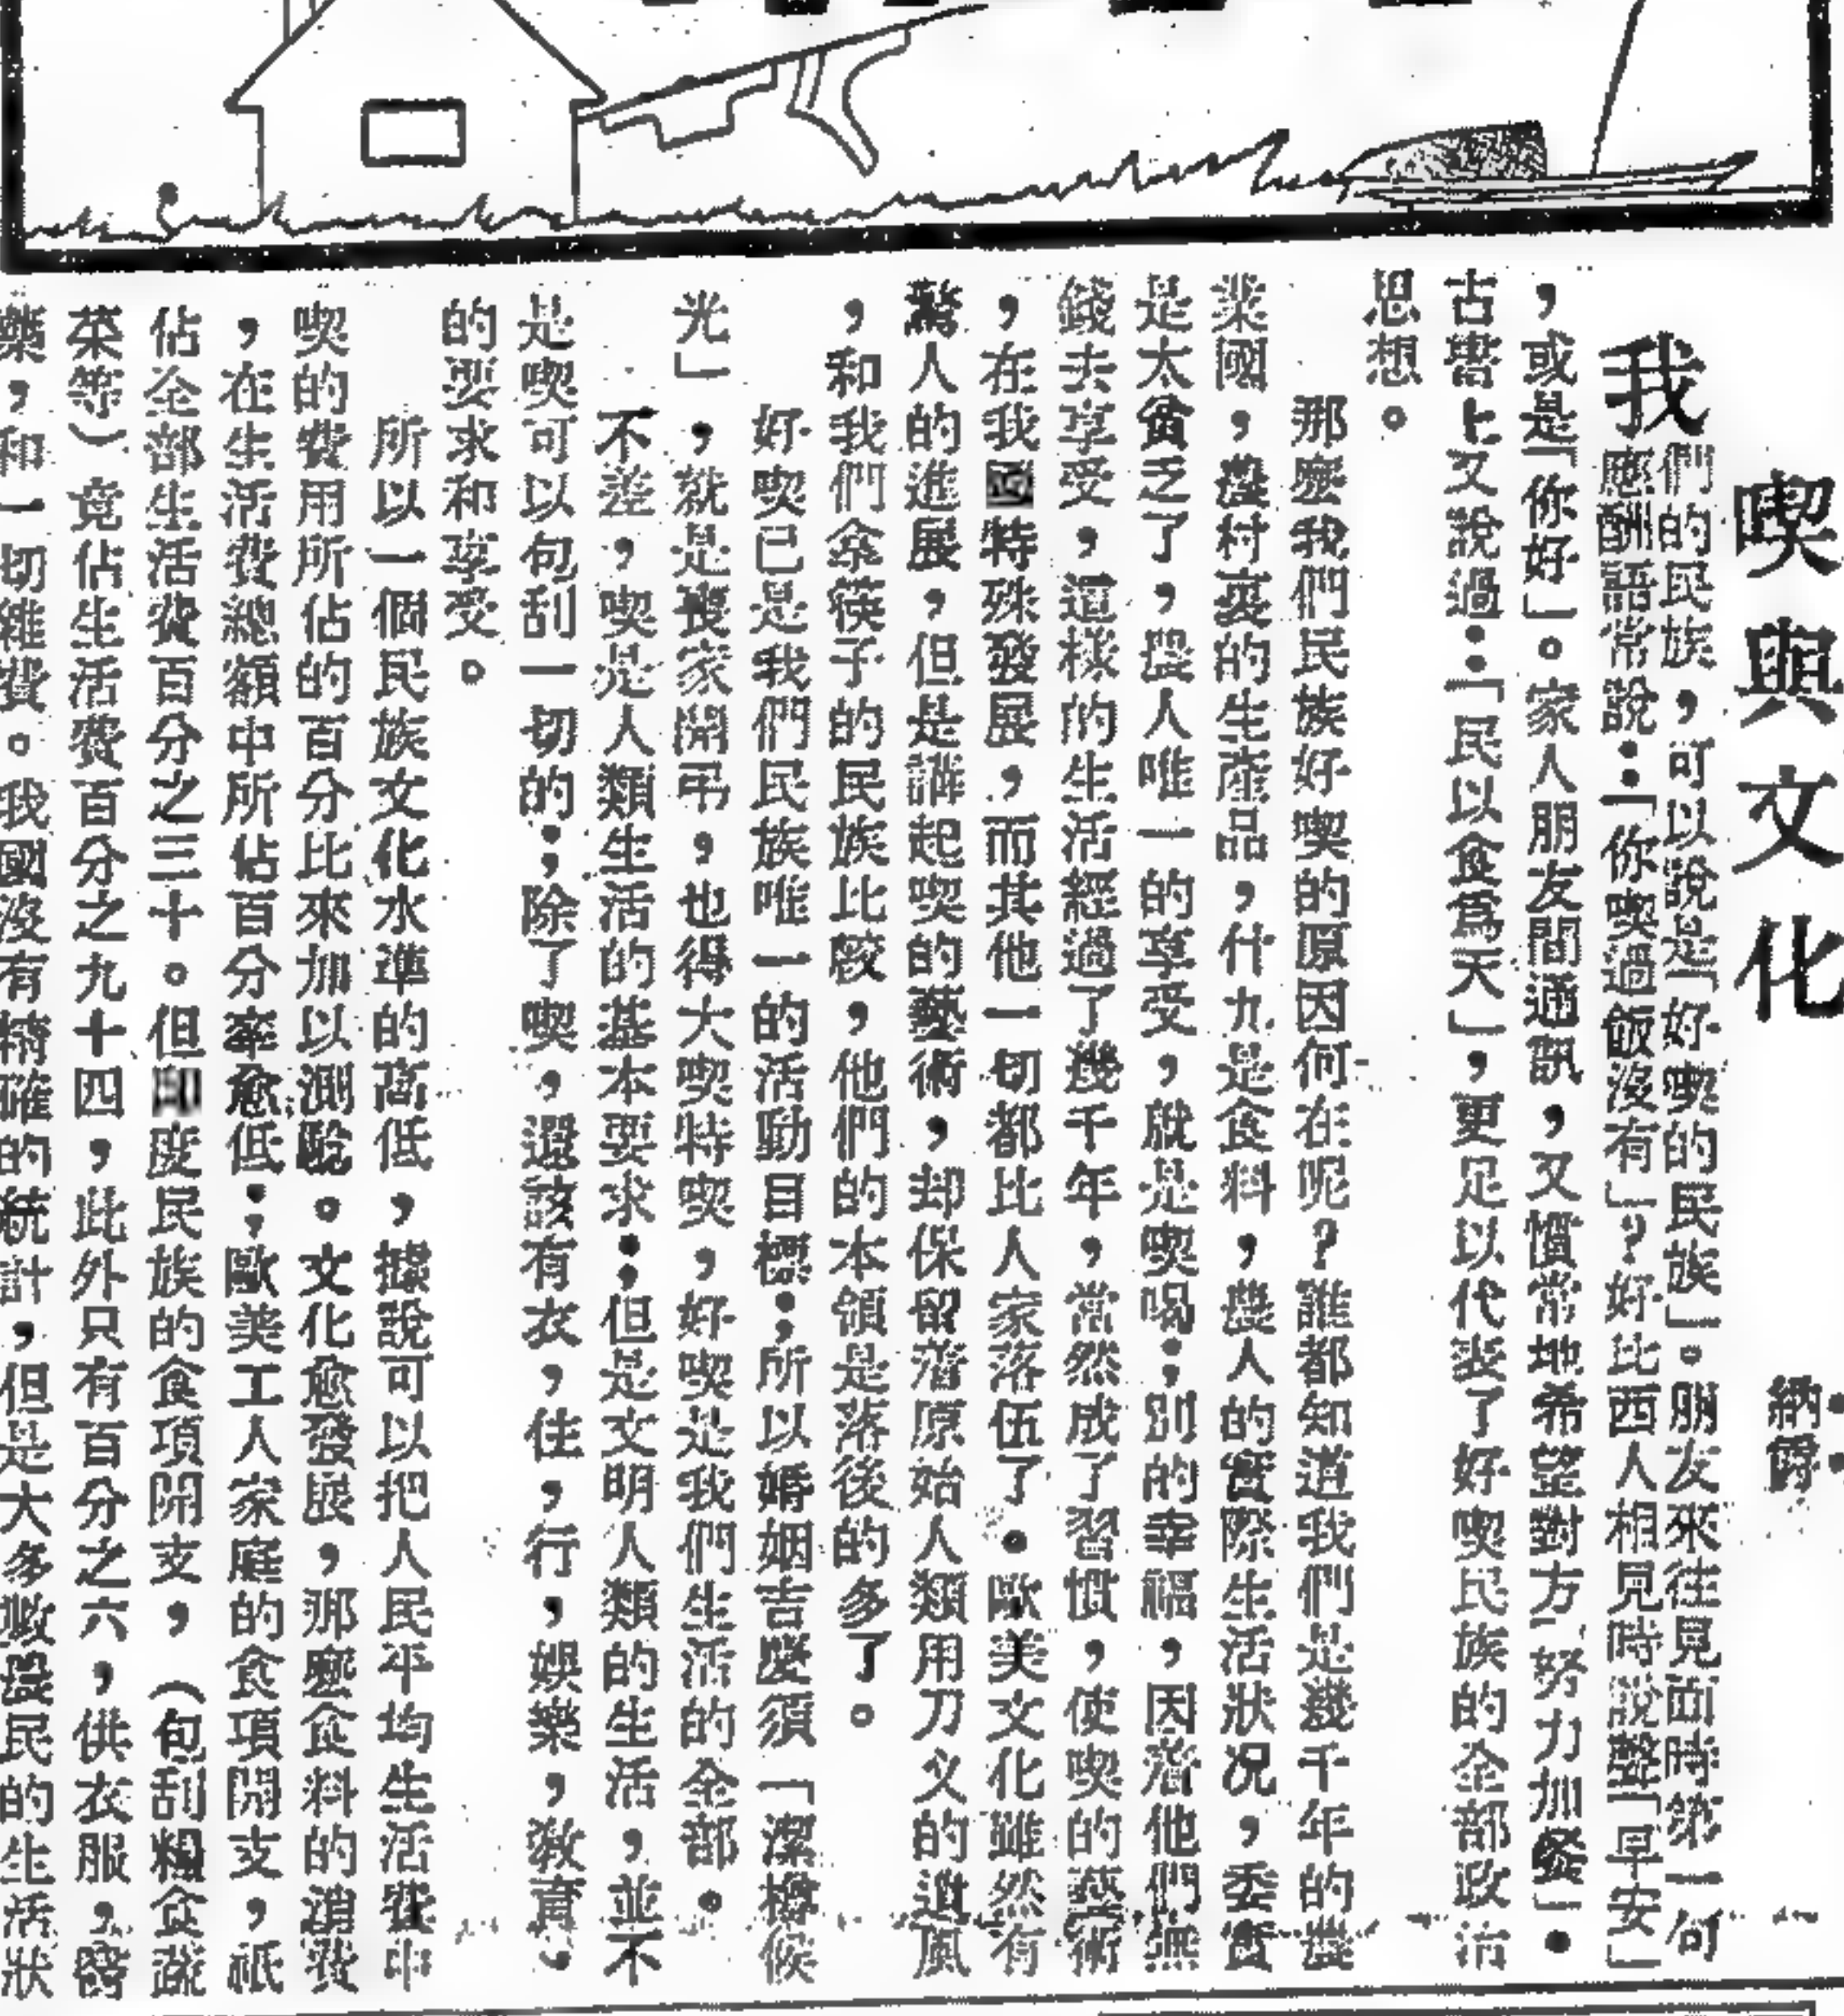 喫與文化
納爵
我們的民族，可以說是「好喫的民族」。朋友來往見面時第一句
應酬語常說：「你喫過飯沒有」？好比西人相見時說聲「早安」
，或是「你好」。家人朋友間通訊，又慣常地希望對方「努力加餐」。
古書上又說過：「民以食爲天」，更足以代表了好喫民族的全部政治
思想。
那麼我們民族好喫的原因何在呢？誰都知道我們是幾千年的農
業國，農村裏的生產品，什九是食料，農人的實際生活狀况，委實
是太貧乏了，農人唯一的享受，就是喫喝；別的幸福，因着他們無
錢去享受，這樣的生活經過了幾千年，當然成了習慣，使喫的藝術
，在我國特殊發展，而其他一切都比人家落伍了。歐美文化雖然有
驚人的進展，但是講起喫的藝術，却保留着原始人類用刀义的遺風
，和我們拿筷子的民族比較，他們的本領是落後的多了。
好喫已是我們民族唯一的活動目標；所以婚姻吉慶須「潔樽候
光」，就是喪家開弔，也得大喫特喫，好喫是我們生活的全部。
不差，喫是人類生活的基本要求；但是文明人類的生活，並不
是喫可以包刮一切的；除了喫，還該有衣，住，行，娛樂，敎育，
的要求和享受。
所以一個民族文化水準的高低，據說可以把人民平均生活費中
喫的費用所佔的百分比來加以測驗。文化愈發展，那麼食料的消費
，在生活費總額中所佔百分率愈低；歐美工人家庭的食項開支，祇
佔全部生活費百分之三十。但印度民族的食項開支，（包刮糧食蔬
菜等）竟佔生活費百分之九十四，此外只有百分之六，供衣服，醫
藥，和一切雜費。我國沒有精確的統計，但是大多數農民的生活狀